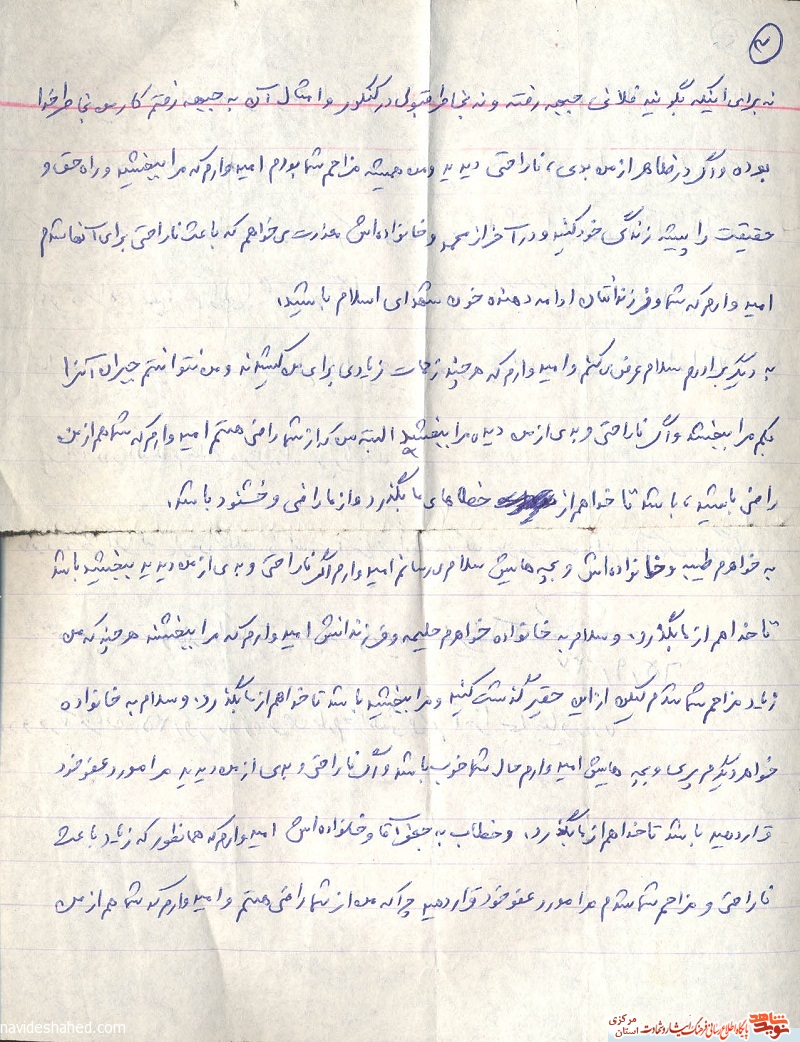 ۳
نه برای اینکه بگویند فلانی جبهه رفته و نه بخاطر قبولی در کنکور و امثال آن به جبهه رفتم کار من بخاطر خدا
بوده و اگر در ظاهر از من بدی، ناراحتی دیدید و من همیشه مزاحم شما بودم امیدوارم که مرا ببخشید و راه حق و
حقیقت را پیشه زندگی خود کنید و در آخر از محمد و خانواده‌اش معذرت می‌خواهم که باعث ناراحتی برای آنها شدم
امیدوارم که شما و فرزندانتان ادامه دهنده خون شهدای اسلام باشید.
به دیگر برادرم سلام عرض می‌کنم و امیدوارم که هر چند زحمات زیادی برای من کشیدند و من نتوانستم جبران آنرا
بکنم مرا ببخشد و اگر ناراحتی و بدی از من دیده مرا ببخشید البته من که از شما راضی هستم امیدوارم که شما هم از من
راضی باشید، باشد تا خدا هم از خطاهای ما بگذرد و از ما راضی و خشنود باشد.
به خواهرم طیبه و خانواده‌اش و بچه هایش سلام می‌رسانم امیدوارم اگر ناراحتی و بدی از من دیدید ببخشید باشد
تا خدا هم از ما بگذرد. و سلام به خانواده خواهرم حلیمه و فرزندانش امیدوارم که مرا ببخشند هر چند که من
زیاد مزاحم شما شدم لیکن از این حقیر گذشت کنید و مرا ببخشید باشد تا خدا هم از ما بگذرد. و سلام به خانواده
خواهر دیگرم پری و بچه هایش امیدوارم حال شما خوب باشد و اگر ناراحتی و بدی از من دیدید مرا مورد عفو خود
قرار دهید باشد تا خدا هم از ما بگذرد. و خطاب به آقا و خانواده‌اش امیدوارم که همانطور که زیاد باعث
ناراحتی و مزاحم شما شدم مرا مورد عفو خود قرار دهید چرا که من از شما راضی هستم و امیدوارم که شما هم از من
navideshahed.com
نوید شاهد
پایگاه اطلاع رسانی فرهنگ ایثار و شهادت
استان مرکزی